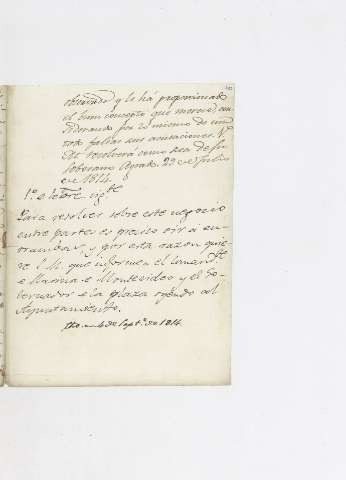 observado y le há proporcionado
el buen concepto que merece, con
siderando por lo mismo de un
todo falsas sus acusaciones. V.
M. resolverá como sea de su
Soberano Agrado 29 de Julio
de 1814.
1.º de sigte
Para resolver sobre este negocio
entre partes es preciso oir á en-
trambas, y por esta razon quie-
re S.M. que informen el Comandte
de Marina de Montevideo y el Go-
bernador de la plaza oyendo al
Ayuntamiento.
fho en 4 de Septe. de 1814.